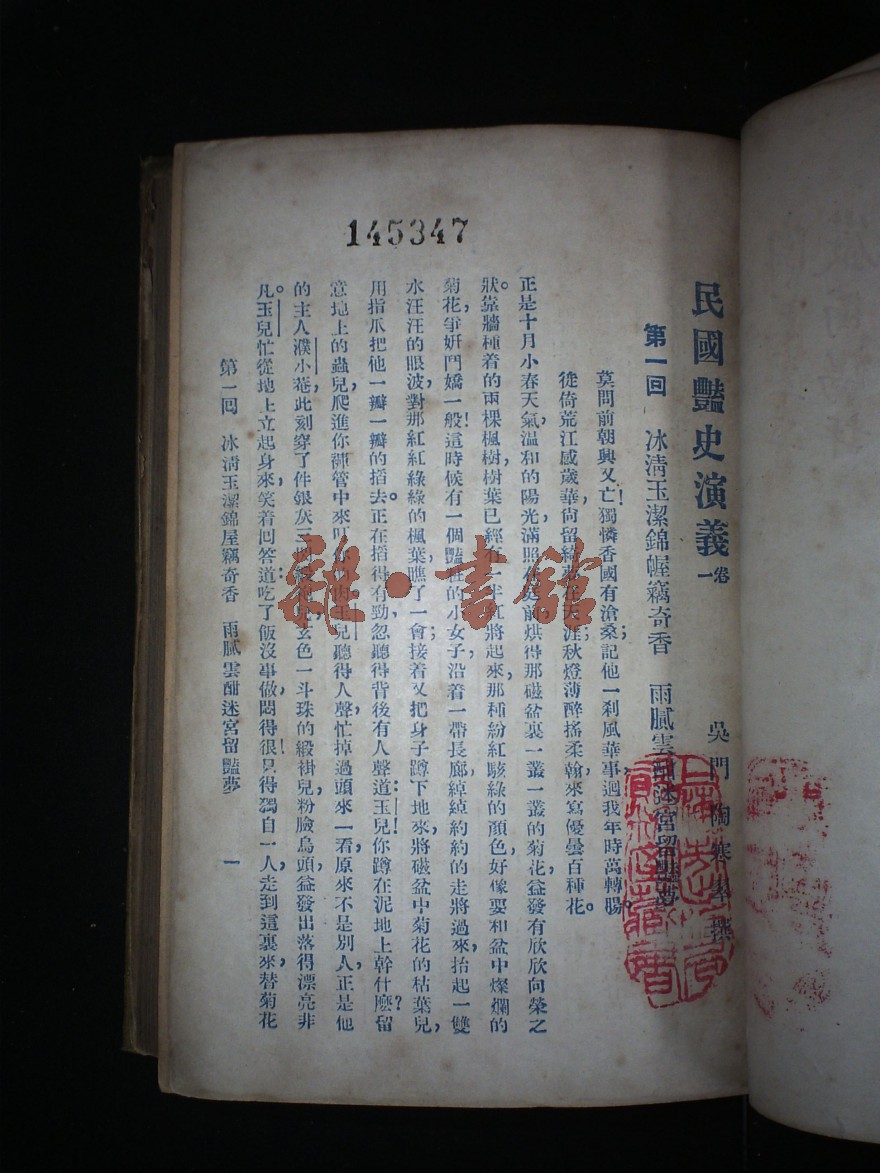 145347
民國豔史演義 卷一
吳門陶寒翠撰
第一回 冰淸玉潔錦幄竊奇香 雨膩雲酣迷宮留豔夢
莫問前朝興又亡!獨憐香國有滄桑;記他一刹風華事,迴我年時萬轉腸。
徙倚荒江感歲華,尙留綺夢在天涯;秋燈薄醉搖柔翰,來寫優曇百種花。
正是十月小春天氣,温和的陽光滿照在庭前,烘得那磁盆裏一叢一叢的菊花,益發有欣欣向榮之
狀。靠牆種着的兩棵楓樹,樹葉已經有一半紅將起來,那種紛紅駭綠的顏色,好像要和盆中燦爛的
菊花,爭妍鬥嬌一般!這時候有一個豔粧的小女子,沿着一帶長廊,綽綽約約的走將過來,抬起一雙
水汪汪的眼波,對那紅紅綠綠的楓葉瞧了一會;接着又把身子蹲下地來,將磁盆中菊花的枯葉兒,
用指爪把他一瓣一瓣的掐去。正在掐得有勁,忽聽得背後有人聲道:玉兒!你蹲在泥地上幹什麼?留
意地上的蟲兒,爬進你褲管中來叮你的肉。玉兒聽得人聲,忙掉過頭來一看,原來不是別人,正是他
的主人濮小菴,此刻穿了件銀灰三閃緞袍兒,玄色一斗珠的緞褂兒,粉臉烏頭,益發出落得漂亮非
凡。玉兒忙從地上立起身來,笑着回答道:吃了飯沒事做,悶得很!只得獨自一人,走到這裏來,替菊花
第一回 冰淸玉潔錦屋竊奇香 雨膩雲酣迷宮留豔夢
一
雜·書館